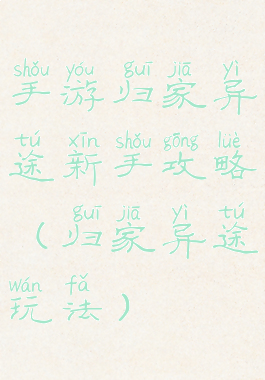 shǒu yóu guī jiā yì
手游归家异
tú xīn shǒu gōng lüè
途新手攻略
guī jiā yì tú
（归家异途
wán fǎ
玩法）